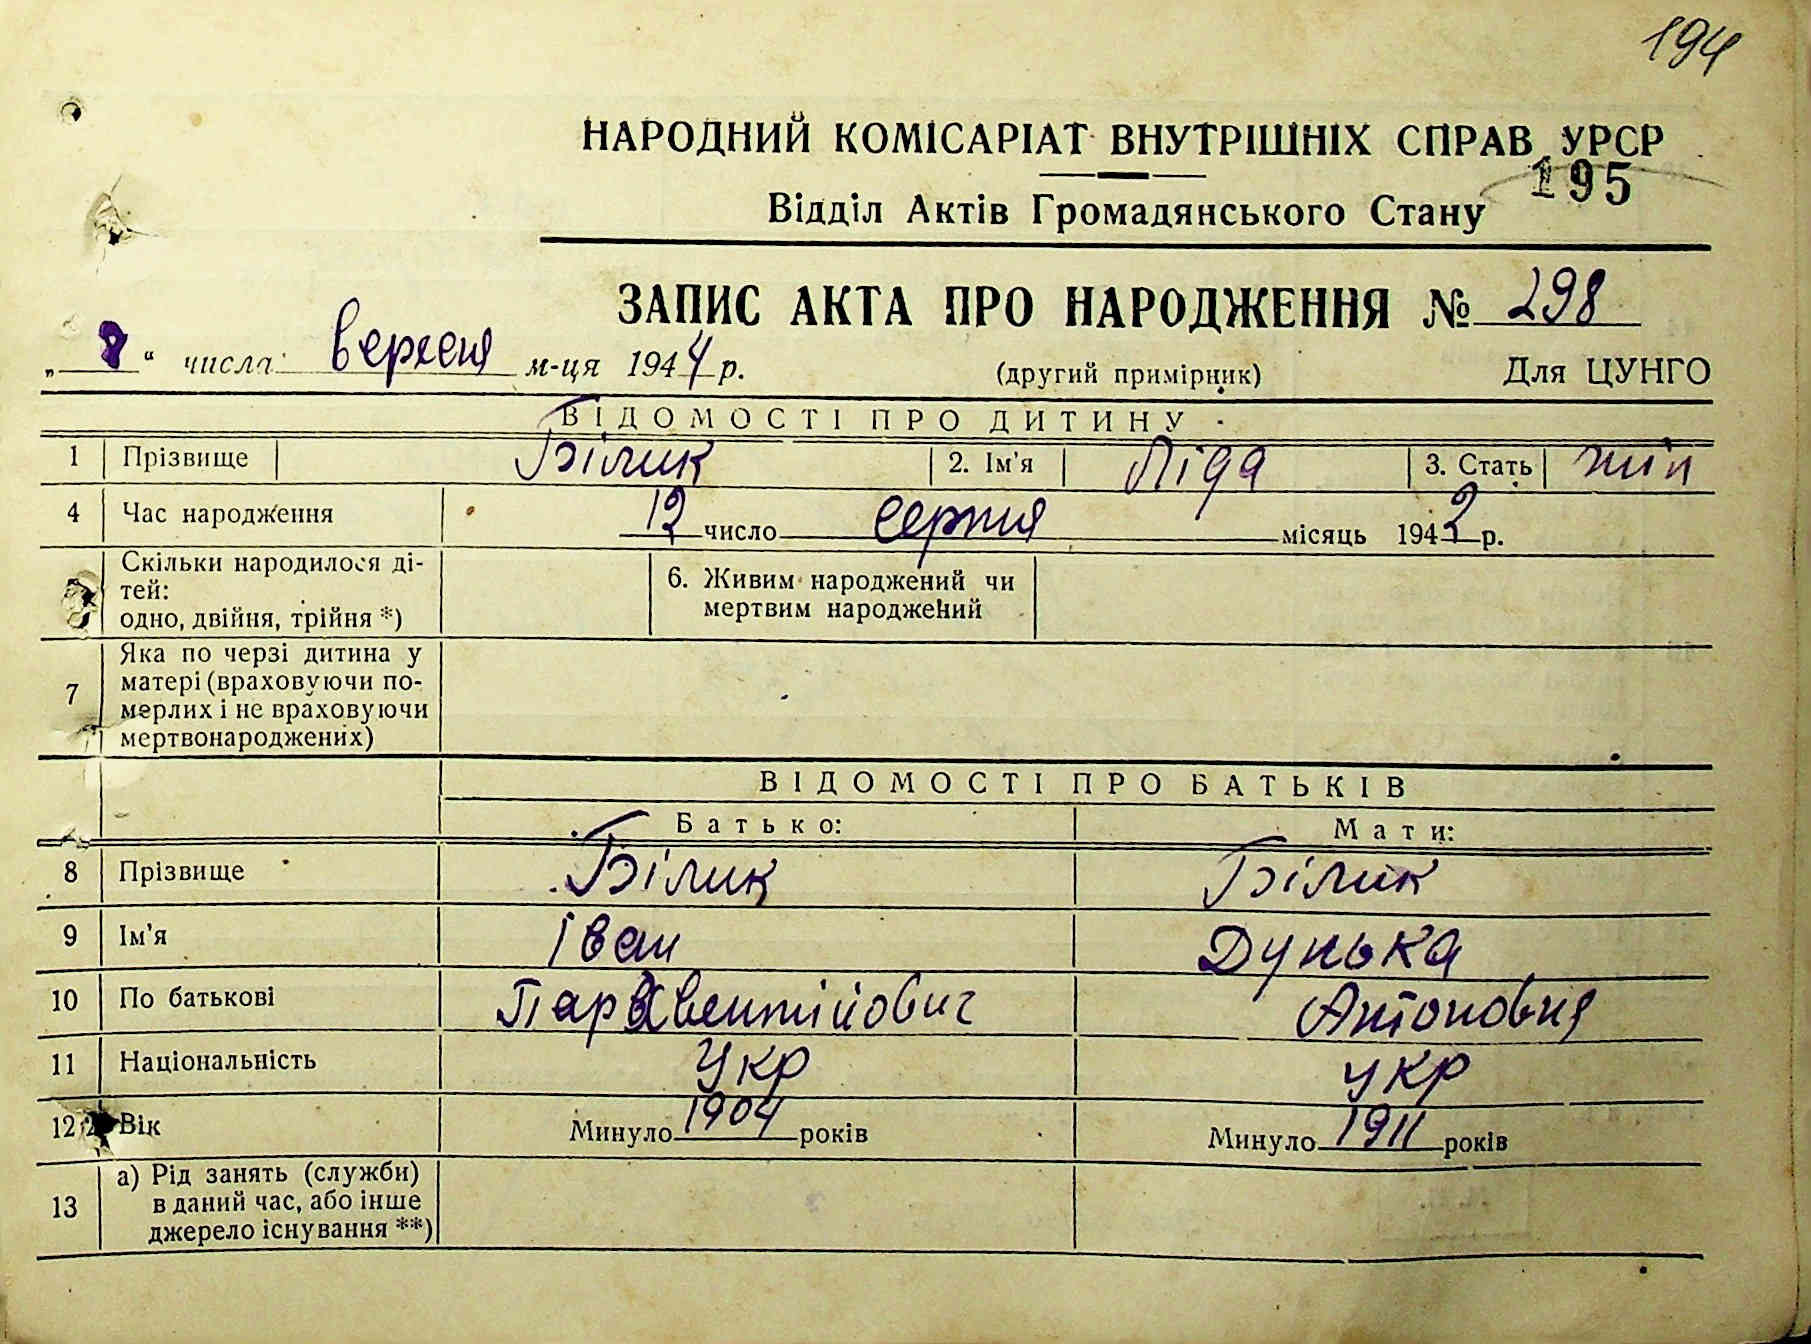 194
НАРОДНИЙ КОМІСАРІАТ ВНУТРІШНІХ СПРАВ УРСР
195
Відділ Актів Громадянського Стану
ЗАПИС АКТА ПРО НАРОДЖЕННЯ № 298
„8“ числа вересня м-ця 1944 р. (другий примірник) Для ЦУНГО
ВІДОМОСТІ ПРО ДИТИНУ
1 Прізвище Білик 2. Ім'я Ліда 3. Стать
4 Час народження 12 число серпня місяць 1942 р.
5 Скільки народилося ді-
тей:
одно, двійня, трійня *)
6. Живим народжений чи
мертвим народжений
7 Яка по черзі дитина у
матері (враховуючи по-
мерлих і не враховуючи
мертвонароджених)
ВІДОМОСТІ ПРО БАТЬКІВ
Батько: Мати:
8 Прізвище Білик Білик
9 Ім'я Іван Дунька
10 По батькові Антоновня
11 Національність Укр укр
12 Вік Минуло 1904 років Минуло 1911 років
13 а) Рід занять (служби)
в даний час, або інше
джерело існування **)